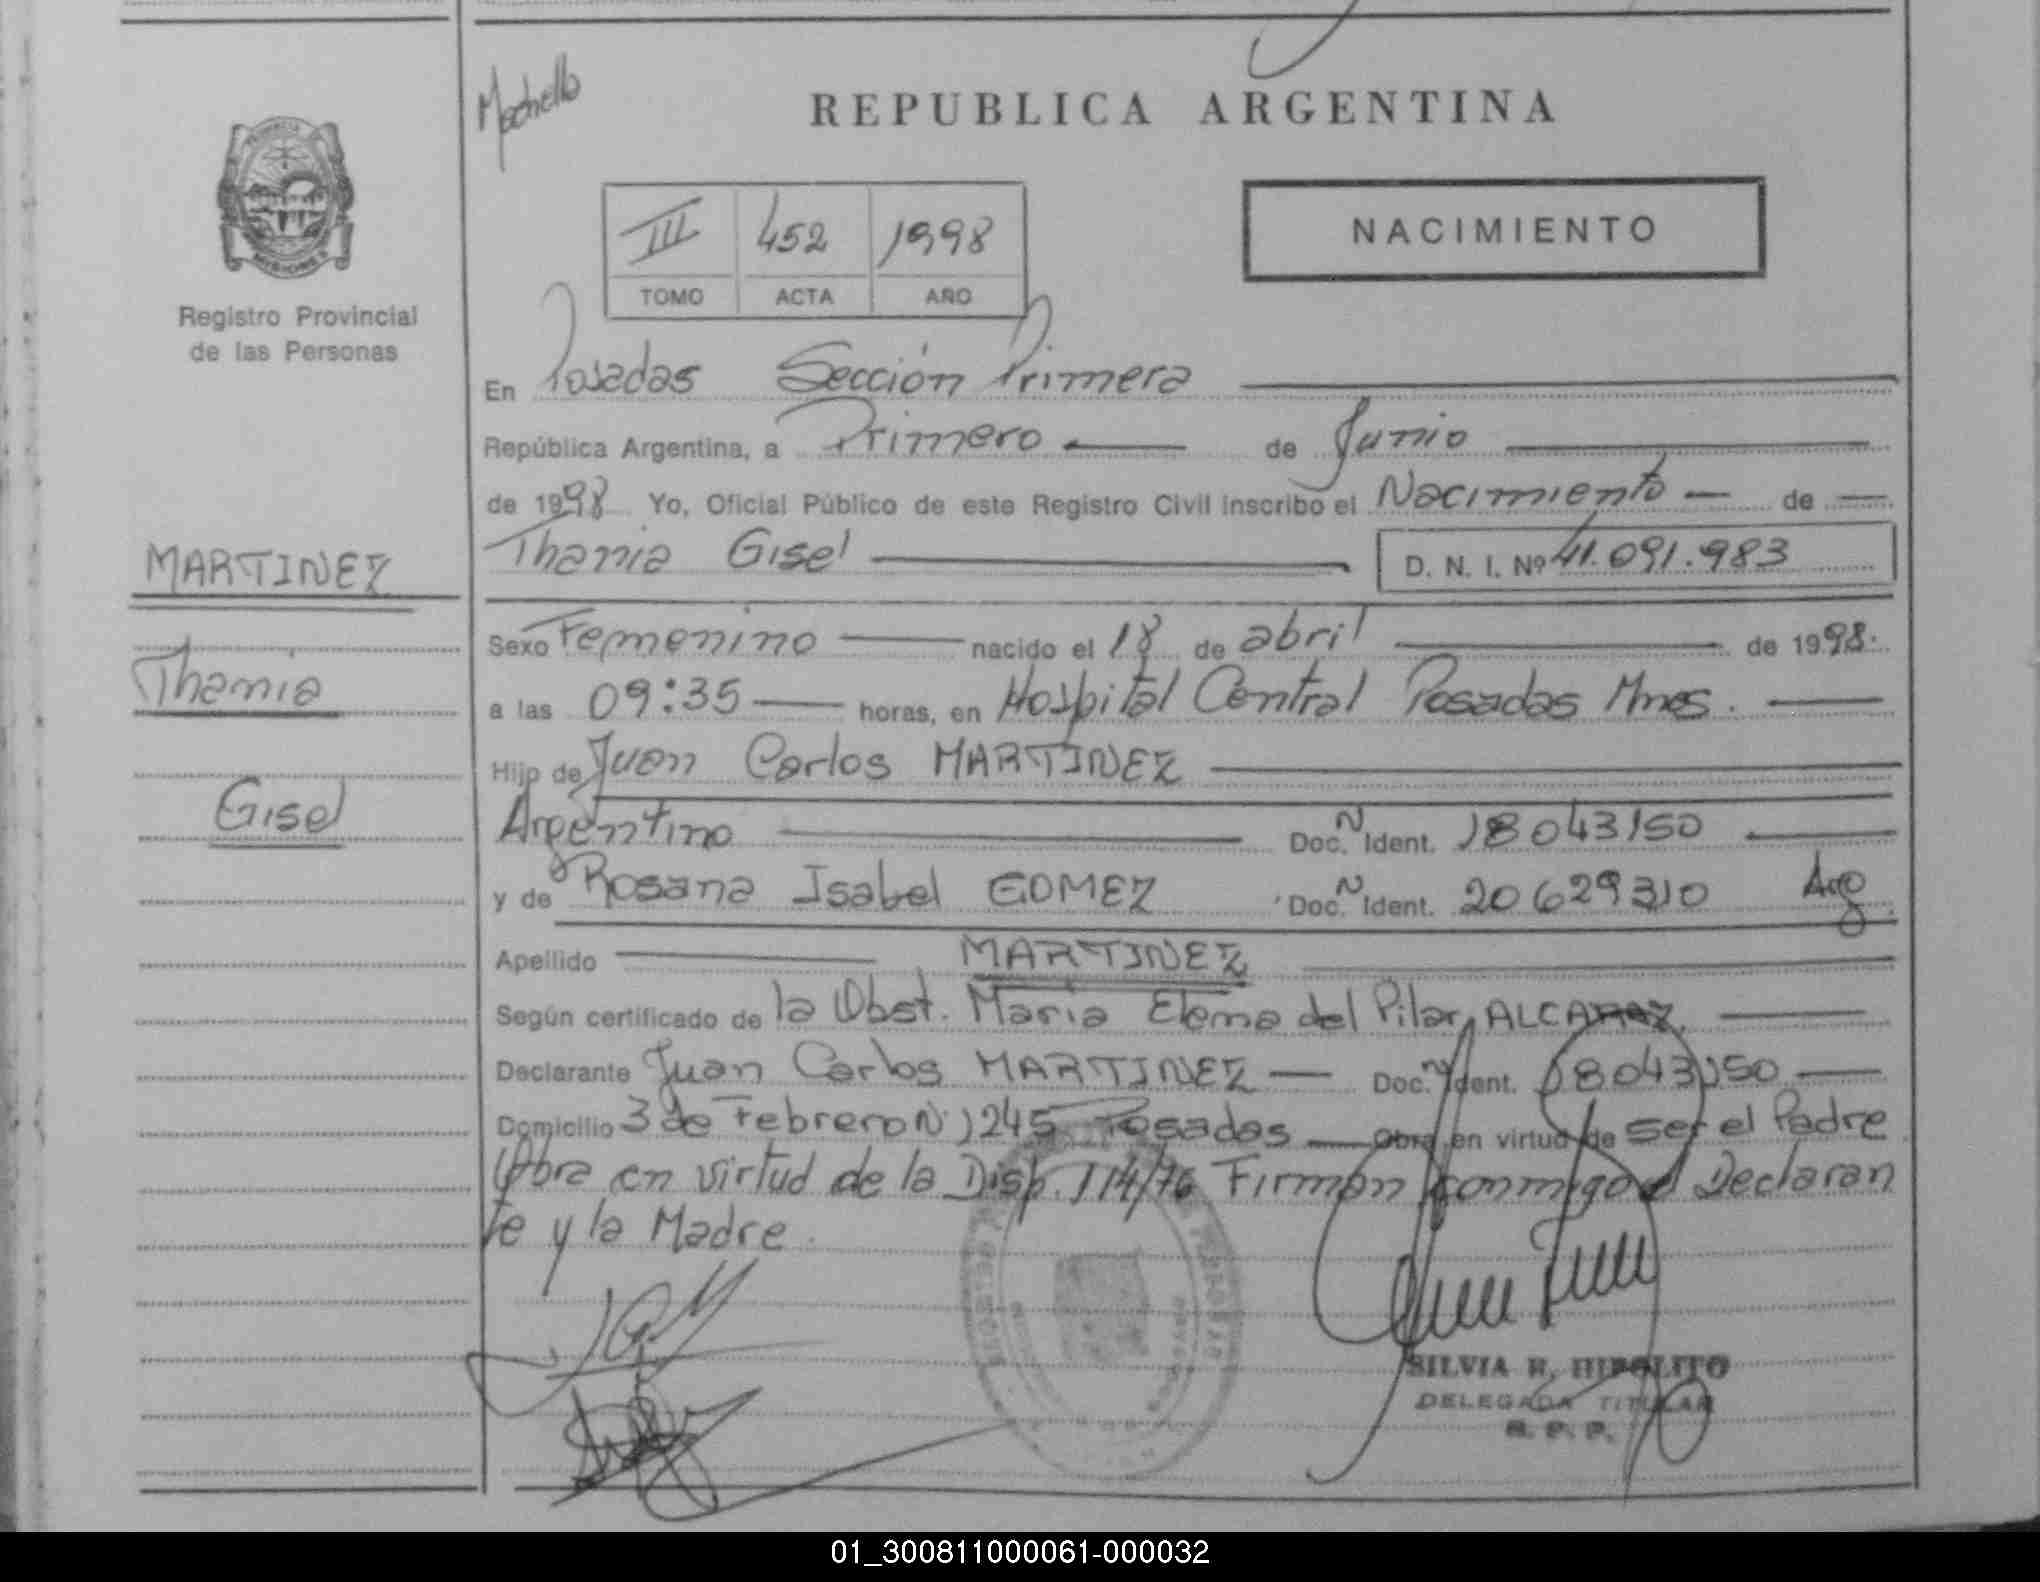 Mochello
REPUBLICA ARGENTINA
NACIMIENTO
III 452 1998
TOMO ACTA AÑO
PROVINCIA
MISIONES
Registro Provincial
de las Personas
En Posadas Sección Primera
República Argentina, a Primero de Junio
de 1998 Yo, Oficial Público de este Registro Civil inscribo el Nacimiento de
Thania Gisel D. N. I. Nº 41.091.983
MARTINEZ
Thania
Gisel
Sexo Femenino nacido el 18 de abril de 1998.
a las 09:35 horas, en Hospital Central Posadas Mnes.
Hijo de Juan Carlos MARTINEZ
Argentino Doc. N Ident. 18043150
y de Rosana Isabel GOMEZ Doc. N Ident. 20629310 Arg
Apellido MARTINEZ
Según certificado de la Obst. Maria Elena del Pilar ALCARAZ
Declarante Juan Carlos MARTINEZ Doc. N Ident. 18043150
Domicilio 3 de Febrero N 1245 Posadas Obra en virtud de ser el Padre
Obra en virtud de la Disp. 114/76 Firman conmigo el Declaran
te y la Madre.
JCM
SILVIA R. HIPOLITO
DELEGADA TITULAR
R. P. P.
01_300811000061-000032